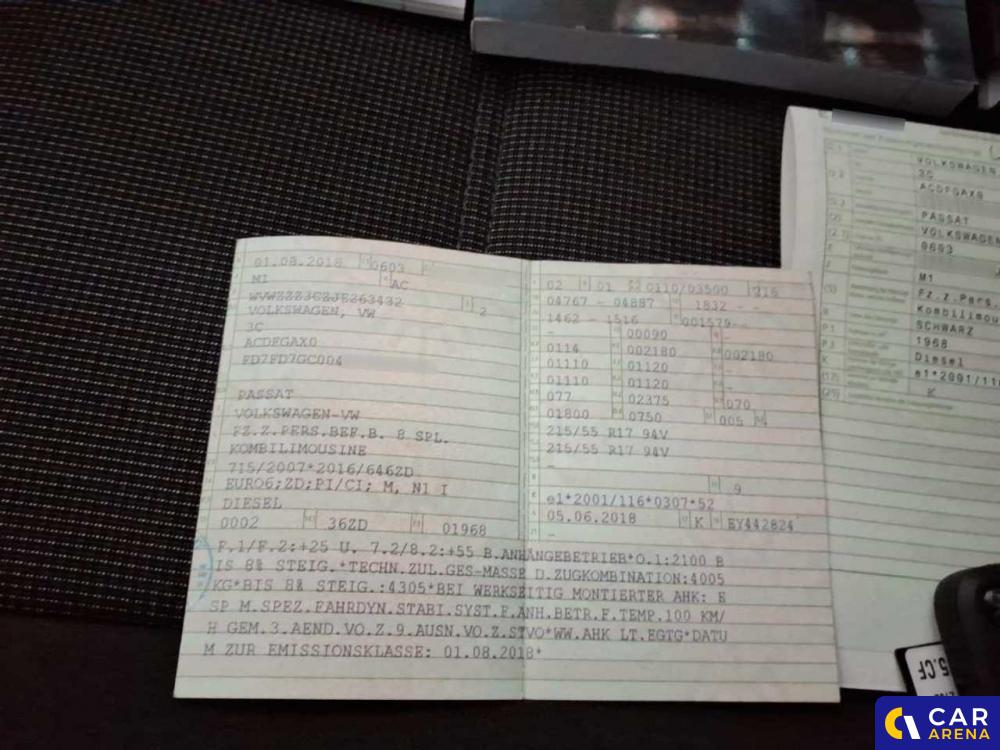 01.08.2018 0603
M1 AC
WVWZZZ3CZJE263432 2
VOLKSWAGEN, VW
3C
ACDFGAX0
FD7FD7GC004
PASSAT
VOLKSWAGEN-VW
FZ.Z.PERS.BEF.B. 8 SPL.
KOMBILIMOUSINE
715/2007*2016/646ZD
EURO6;ZD;PI/CI; M, N1 I
DIESEL
0002 36ZD 01968
02 01 0110/03500 216
04767 - 04887 1832- -
1462 - 1516 001579- -
- 00090 -
0114 002180 002180
01110 01120 -
01110 01120 -
077 02375 070
01800 0750 005
215/55 R17 94V
215/55 R17 94V
-
9
e1*2001/116*0307*52
05.06.2018 K EY442824
-
F.1/F.2:+25 U. 7.2/8.2:+55 B.ANHÄNGEBETRIEB*O.1:2100 B
IS 8% STEIG.*TECHN.ZUL.GES-MASSE D.ZUGKOMBINATION:4005
KG*BIS 8% STEIG.:4305*BEI WERKSEITIG MONTIERTER AHK: E
SP M.SPEZ.FAHRDYN.STABI.SYST.F.ANH.BETR.F.TEMP.100 KM/
H GEM.3.AEND.VO.Z.9.AUSN.VO.Z.STVO*WW.AHK LT.EGTG*DATU
M ZUR EMISSIONSKLASSE: 01.08.2018*
VOLKSWAGEN
3C
ACDFGAX0
PASSAT
VOLKSWAGEN
0603
M1
Fz.z.Pers.
Kombilimou
SCHWARZ
1968
Diesel
e1*2001/11
K
5.CF
CAR
ARENA